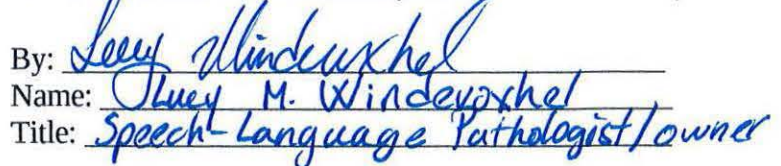 By: Lucy Windevoxhel
Name: Lucy M. Windevoxhel
Title: Speech-Language Pathologist/owner